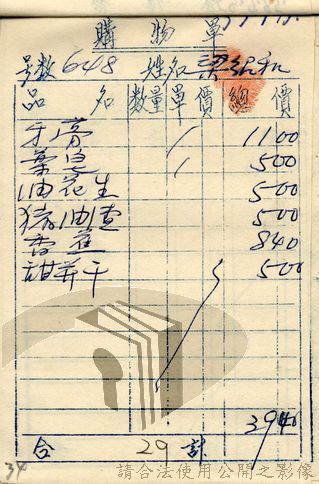 購物單
號數 648 姓名 梁紹和
品名 數量 單價 總價
牙膏 1 1100
藥皂 1 500
油花生 500
猪油渣 500
香蕉 840
甜餅干 500
3940
合 29 計
34
請合法使用公開之影像